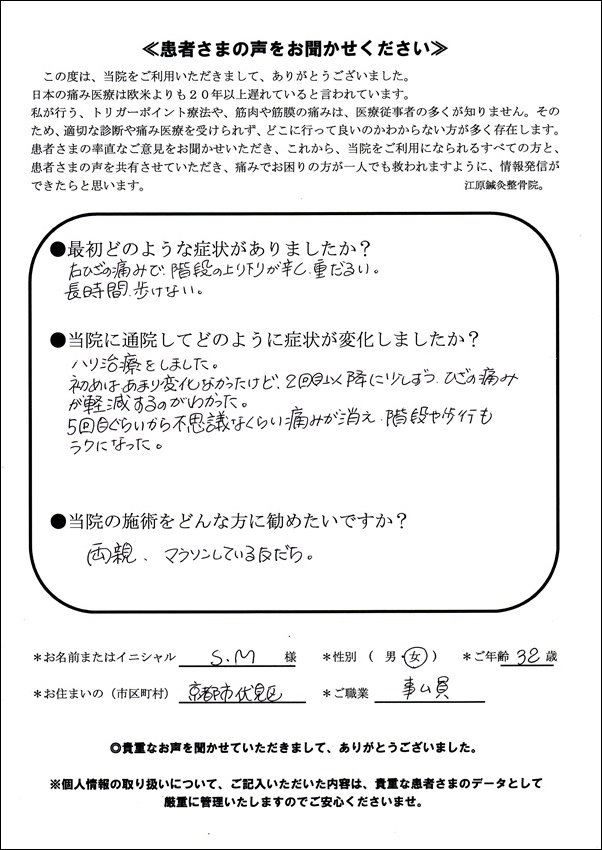 ≪患者さまの声をお聞かせください≫
この度は、当院をご利用いただきまして、ありがとうございました。
日本の痛み医療は欧米よりも２０年以上遅れていると言われています。
私が行う、トリガーポイント療法や、筋肉や筋膜の痛みは、医療従事者の多くが知りません。その
ため、適切な診断や痛み医療を受けられず、どこに行って良いのかわからない方が多く存在します。
患者さまの率直なご意見をお聞かせいただき、これから、当院をご利用になられるすべての方と、
患者さまの声を共有させていただき、痛みでお困りの方が一人でも救われますように、情報発信が
できたらと思います。 江原鍼灸整骨院。
●最初どのような症状がありましたか？
右ひざの痛みで、階段の上り下りが辛く、重だるい。
長時間、歩けない。
●当院に通院してどのように症状が変化しましたか？
ハリ治療をしました。
初めはあまり変化なかったけど、2回目以降に少しずつ、ひざの痛み
が軽減するのがわかった。
5回目ぐらいから不思議なくらい痛みが消え、階段や歩行も
ラクになった。
●当院の施術をどんな方に勧めたいですか？
両親、マラソンしている友だち。
＊お名前またはイニシャル S.M 様 ＊性別（ 男・女 ） ＊ご年齢 32 歳
＊お住まいの（市区町村） 京都市伏見区 ＊ご職業 事ム員
◎貴重なお声を聞かせていただきまして、ありがとうございました。
※個人情報の取り扱いについて、ご記入いただいた内容は、貴重な患者さまのデータとして
厳重に管理いたしますのでご安心くださいませ。